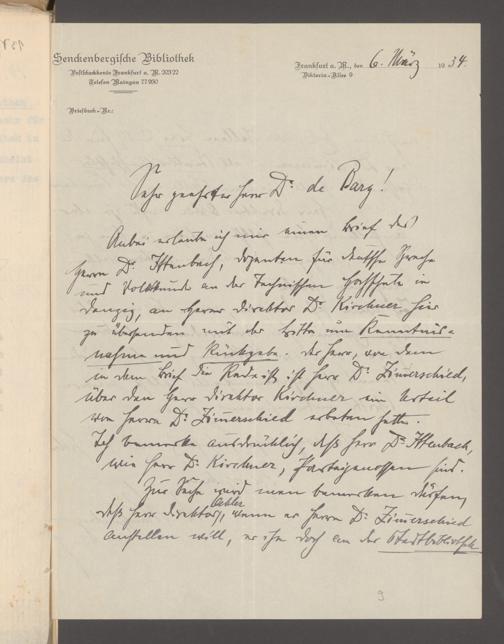 Senckenbergische Bibliothek
Postscheckkonto Frankfurt a. M. 20322
Telefon Maingau 77950
Briefbuch-Nr.:
Frankfurt a. M., den 6. März 1934.
Viktoria-Allee 9
Sehr geehrter Herr Dr. de Bary!
Anbei erlaube ich mir einen Brief des
Herrn Dr. Ittenbach, Dozenten für deutsche Sprache
und Volkskunde an der Technischen Hochschule in
Danzig, an Herrn Direktor Dr. Kirchner hier
zu übersenden mit der Bitte um Kenntnis-
nahme und Rückgabe. Der Herr, von dem
in dem Brief die Rede ist, ist Herr Dr. Zimerschied,
über den Herr Direktor Kirchner ein Urteil
von Herrn Dr. Zimerschied erbeten hatte.
Ich bemerke ausdrücklich, daß Herr Dr. Ittenbach,
wie Herr Dr. Kirchner, Parteigenossen sind.
Zur Sache wird man bemerken dürfen,
daß Herr Direktor Oehler, wenn er Herrn Dr. Zimerschied
anstellen will, er ihn doch an der Stadtbibliothek
9